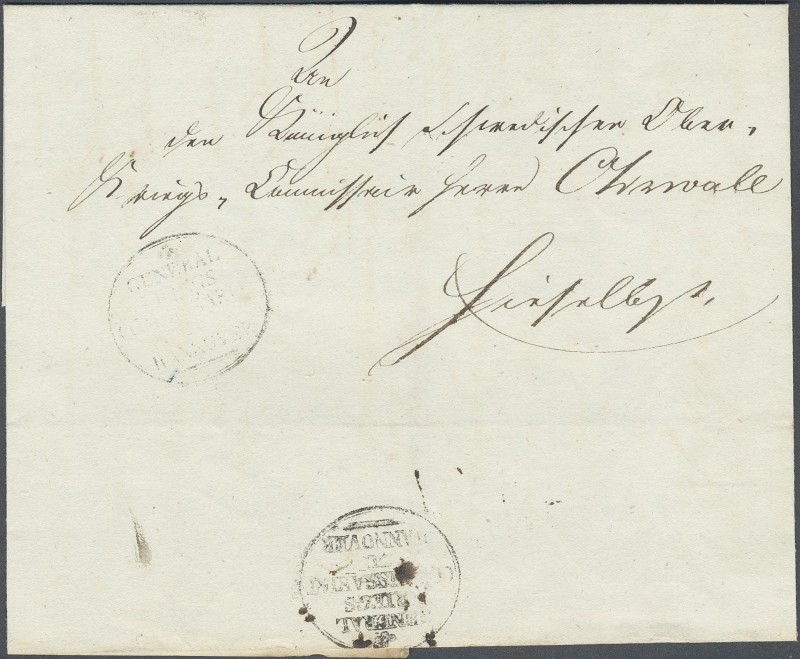 An
den Königlich Schwedischen Ober,
Kriegs, Commissair Herrn
Hieselbst.
GENERAL
HANNOVER
GENERAL
KRIEGS
ZU
HANNOVER